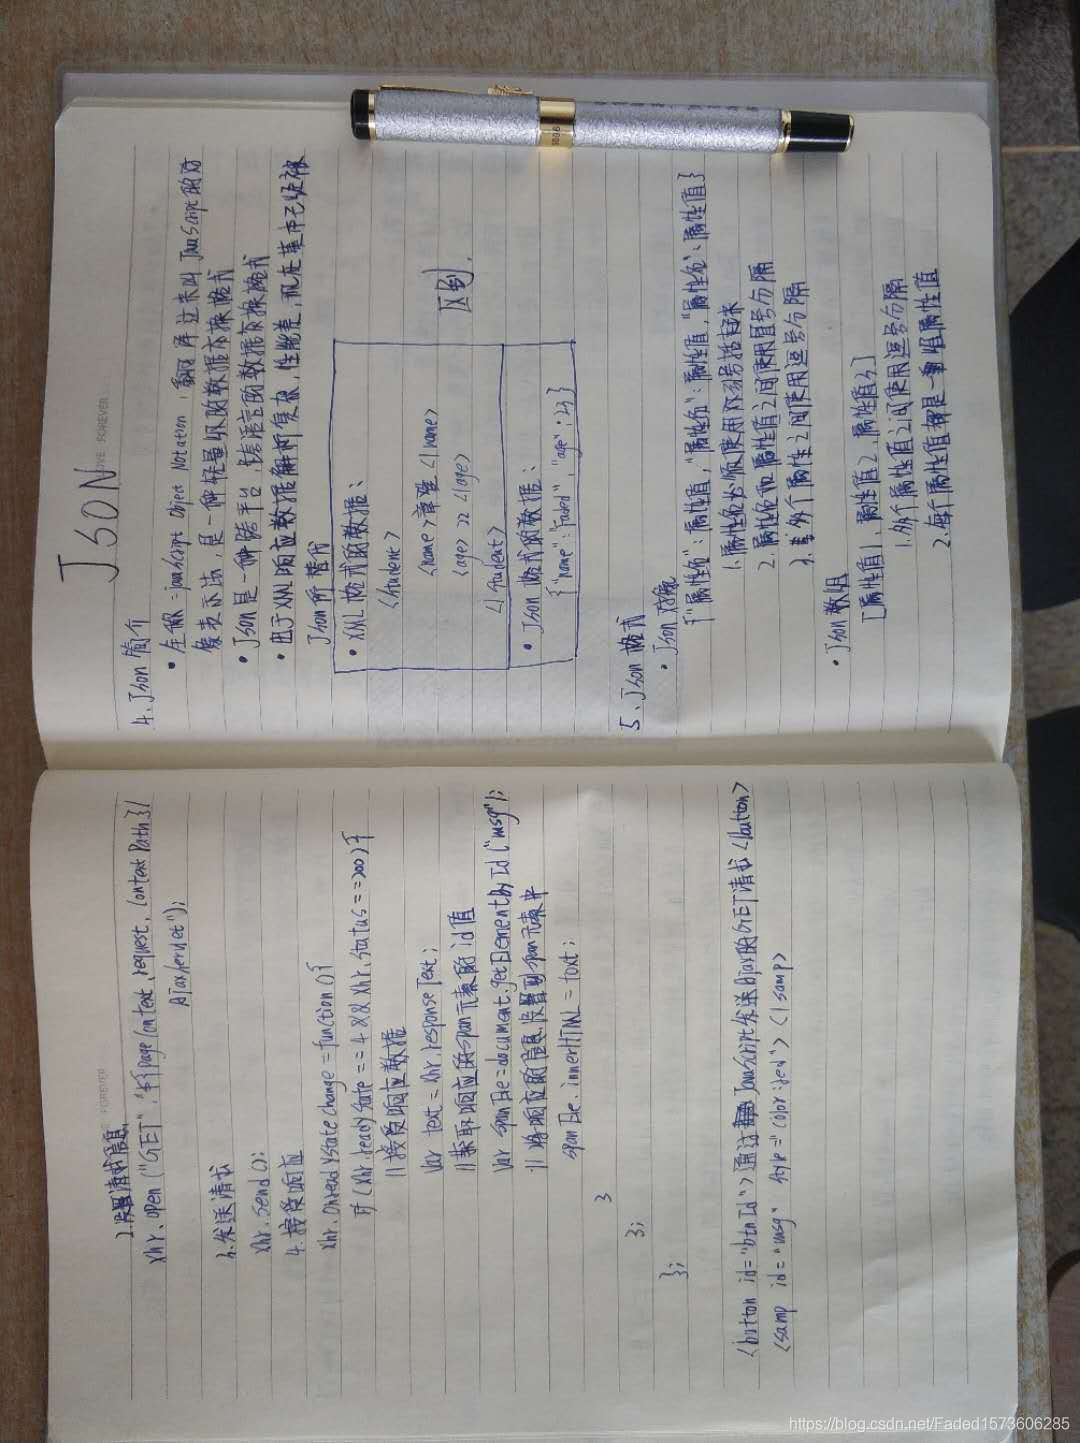 2.设置请求信息
xhr.open("GET","${pageContext.request.contextPath}/
AjaxServlet");
3.发送请求
xhr.send();
4.接受响应
xhr.onreadystatechange=function(){
if(xhr.readyState==4&&xhr.status==200){
//接受响应数据
var text=xhr.responseText;
//获取响应的span元素的id值
var spanEle=document.getElementById("msg");
//将响应的信息设置到span元素中
spanEle.innerHTML=text;
}
};
};
<button id="btnId">通过JavaScript发送Ajax的GET请求</button>
<samp id="msg" style="color:red"></samp>
FOREVER
Json
LOVE FOREVER
4、Json简介
•全称=javaScript Object Notation,翻译过来叫JavaScript的对
象表示法,是一种轻量级的数据交换格式
•Json是一种跨平台、跨语言的数据交换格式
•由于XML响应数据解析复杂,性能差,现在基本已经被
Json所替代
•XML格式的数据:
<student>
<name>章準</name>
<age>22</age>
</student>
区别.
•Json格式的数据:
{"name":"Faded","age":23}
5、Json格式
•Json对象
{"属性名":属性值,"属性名":属性值,"属性名":属性值}
1.属性名必须使用双引号括起来
2.属性名和属性值之间使用冒号分隔
3.多个属性之间使用逗号分隔
•Json数组
[属性值1,属性值2,属性值3]
1.多个属性值之间使用逗号分隔
2.每个属性值都是一组属性值
https://blog.csdn.net/Faded1573606285